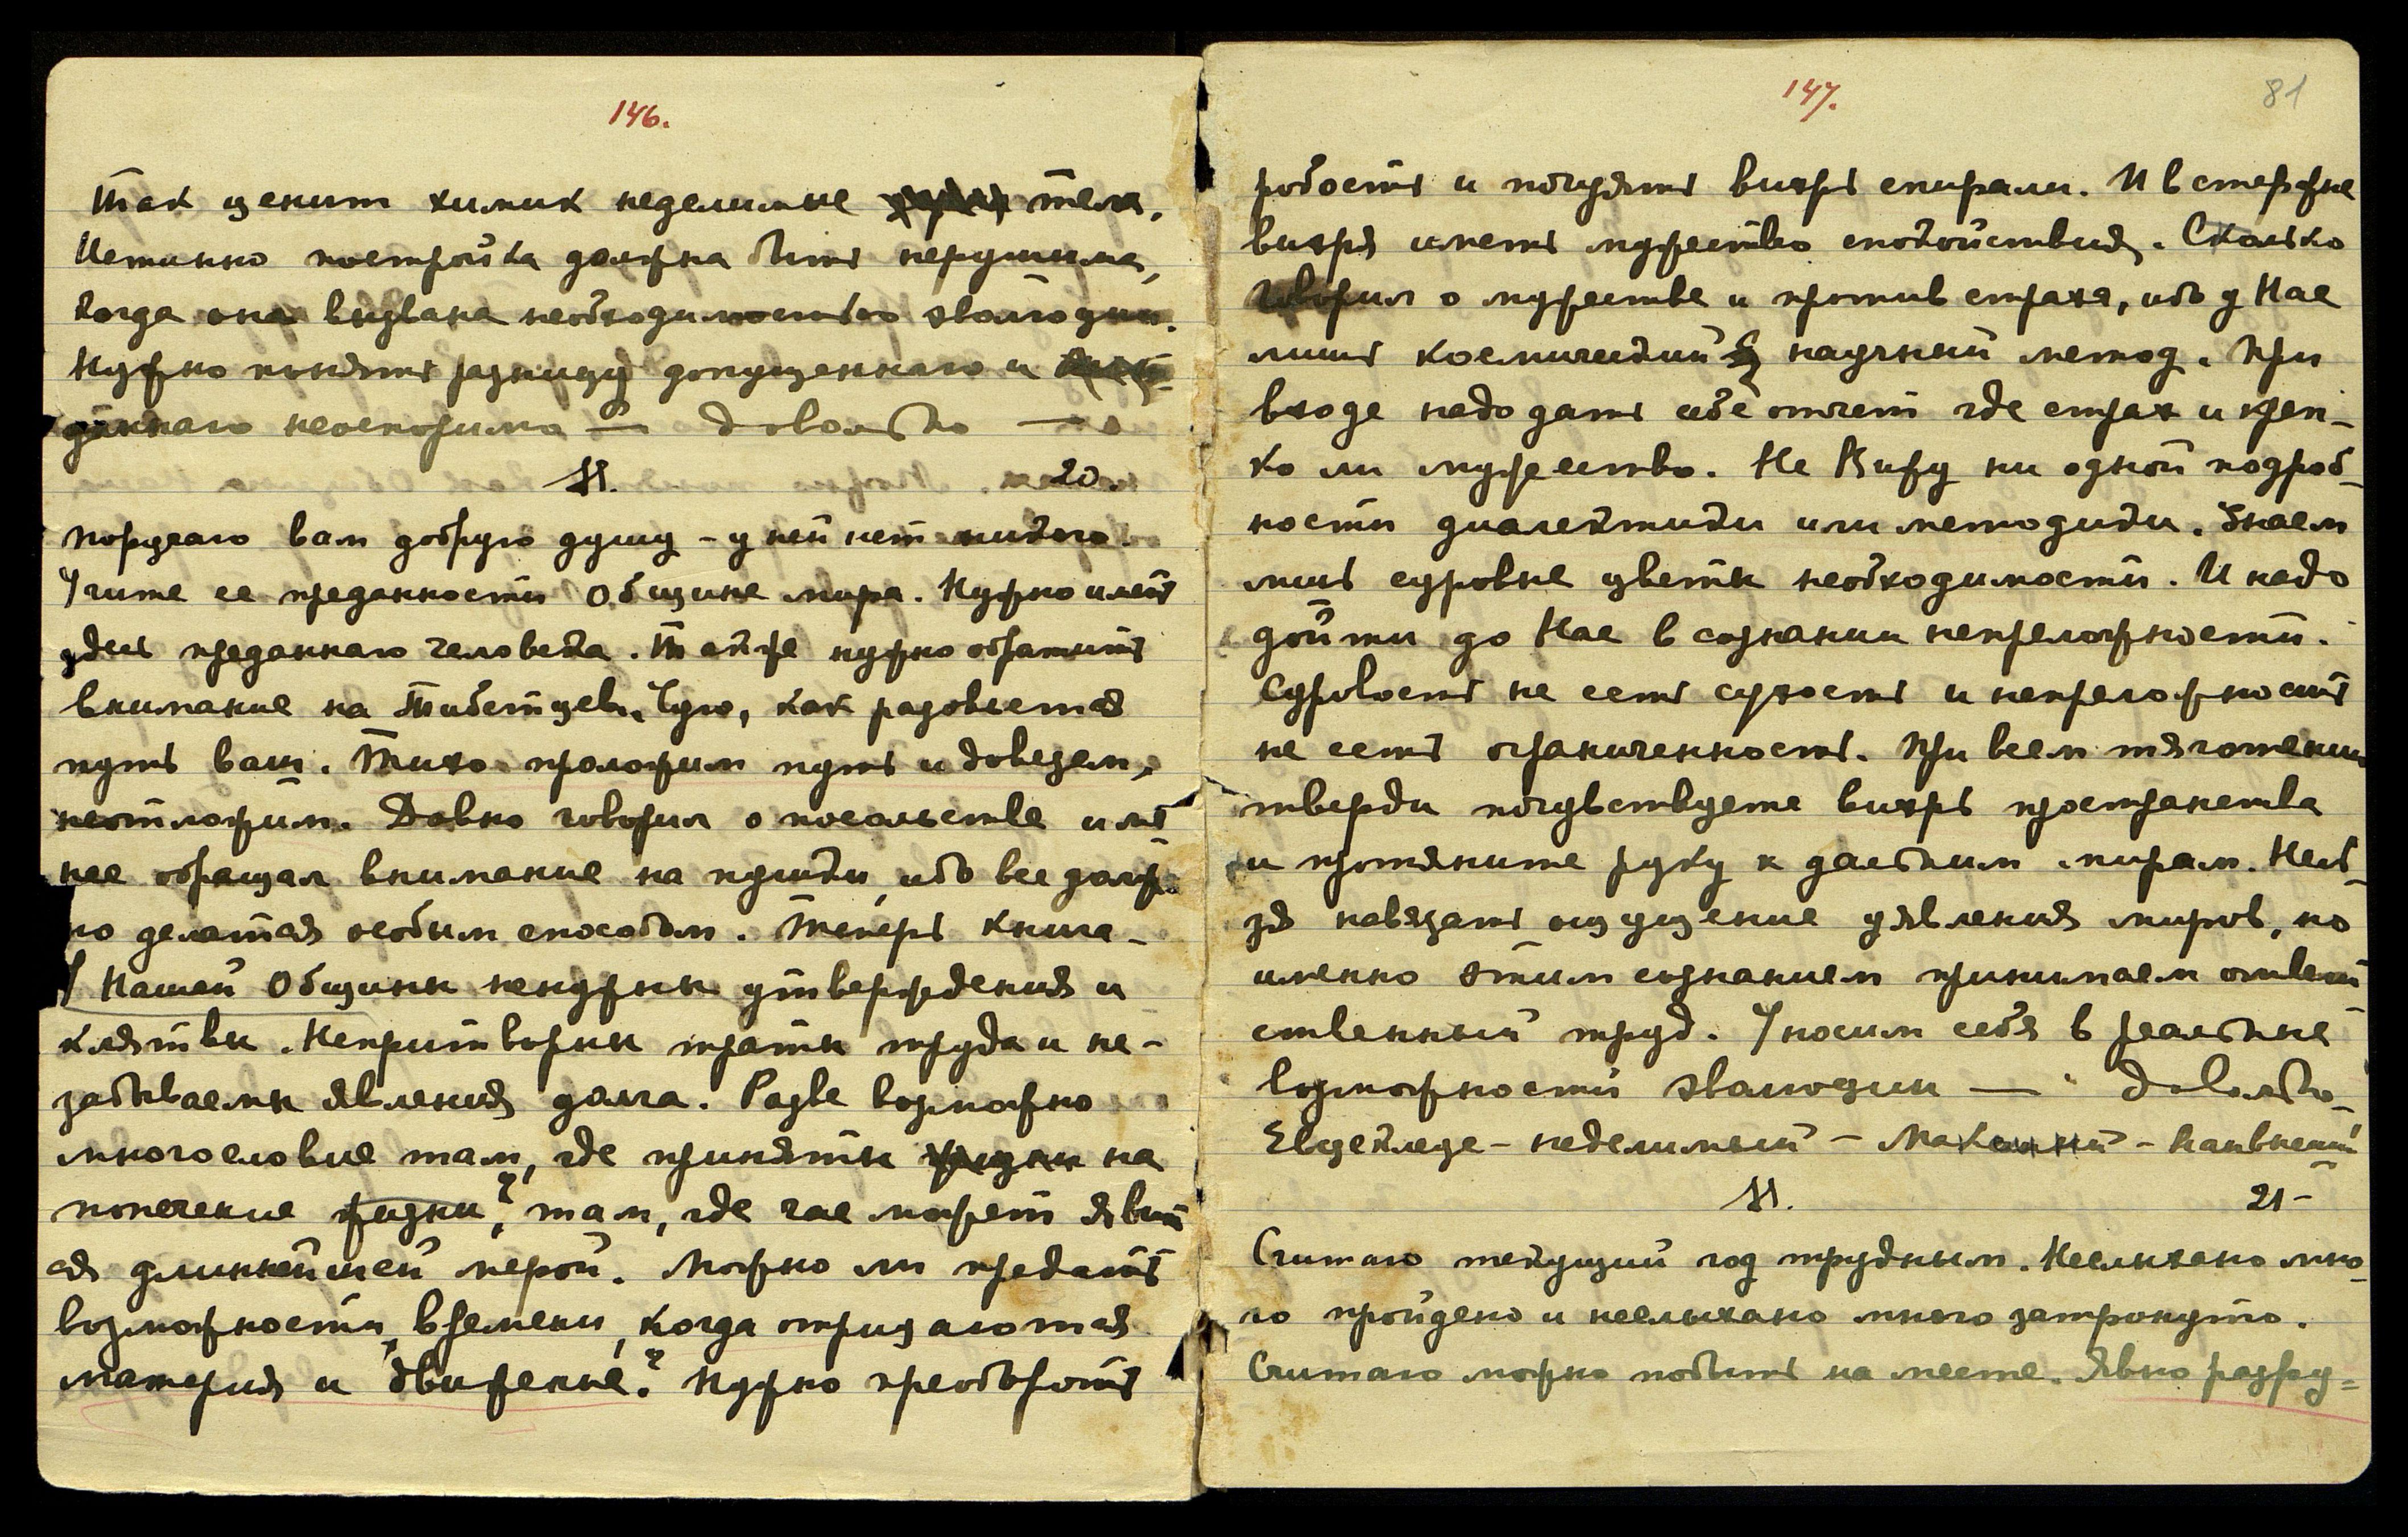 146.
Так ценит химик неделимые тела.
Истинно постройка должна быть нерушима,
когда она вызвана необходимостью эволюции.
Нужно понять разницу допущеннаго и
даннаго неоспоримо — довольно —
20.
Поручаю вам добрую душу – у ней нет никого.
Учите ее преданности Общине мира. Нужно иметь
здесь преданнаго человека. Также нужно обратить
внимание на Тибетцев. Чую, как радовается
путь ваш. Тихо проложим путь и доведем,
неотложим. Давно говорил о посольстве и ме
нее обращал внимание на пушки, ибо все долж-
но делаться особым способом. Теперь книга –
У Нашей Общины ненужны утверждения и
клятвы. Непритворны траты труда и не-
забываемы явления долга. Разве возможно
многословие там, где приняты на
попечение жизни?, там, где час может явить
ся длиннейшей мерой. Можно ли предать
возможности времени, когда отрицаются
материя и движение? Нужно преобороть
147.
81
робость и почуять вихрь спирали. И в стержне
вихря иметь мужество спокойствия. Сколько
говорил о мужестве и против страха, ибо у Нас
лишь космический научный метод. При
входе надо дать себе отчет где страх и креп-
ко ли мужество. Не Вижу ни одной подроб-
ности диалектики или методики. Знаем
лишь суровые цветы необходимости. И надо
дойти до Нас в сознании непреложности.
Суровость не есть сухость и непреложность
не есть ограниченность. При всем тяготении
тверди почувствуете вихрь пространства
и протяните руку к дальним мирам. Нель-
зя навязать ощущение уявления миров, но
именно этим сознанием принимаем ответ-
ственный труд. Уносим себя в реальные
возможности эволюции — довольно –
неделимый –
21 –
Считаю текущий год трудным. Неслыхано мно-
го пройдено и неслыхано много затронуто.
Считаю можно побыть на месте. Явно разру=